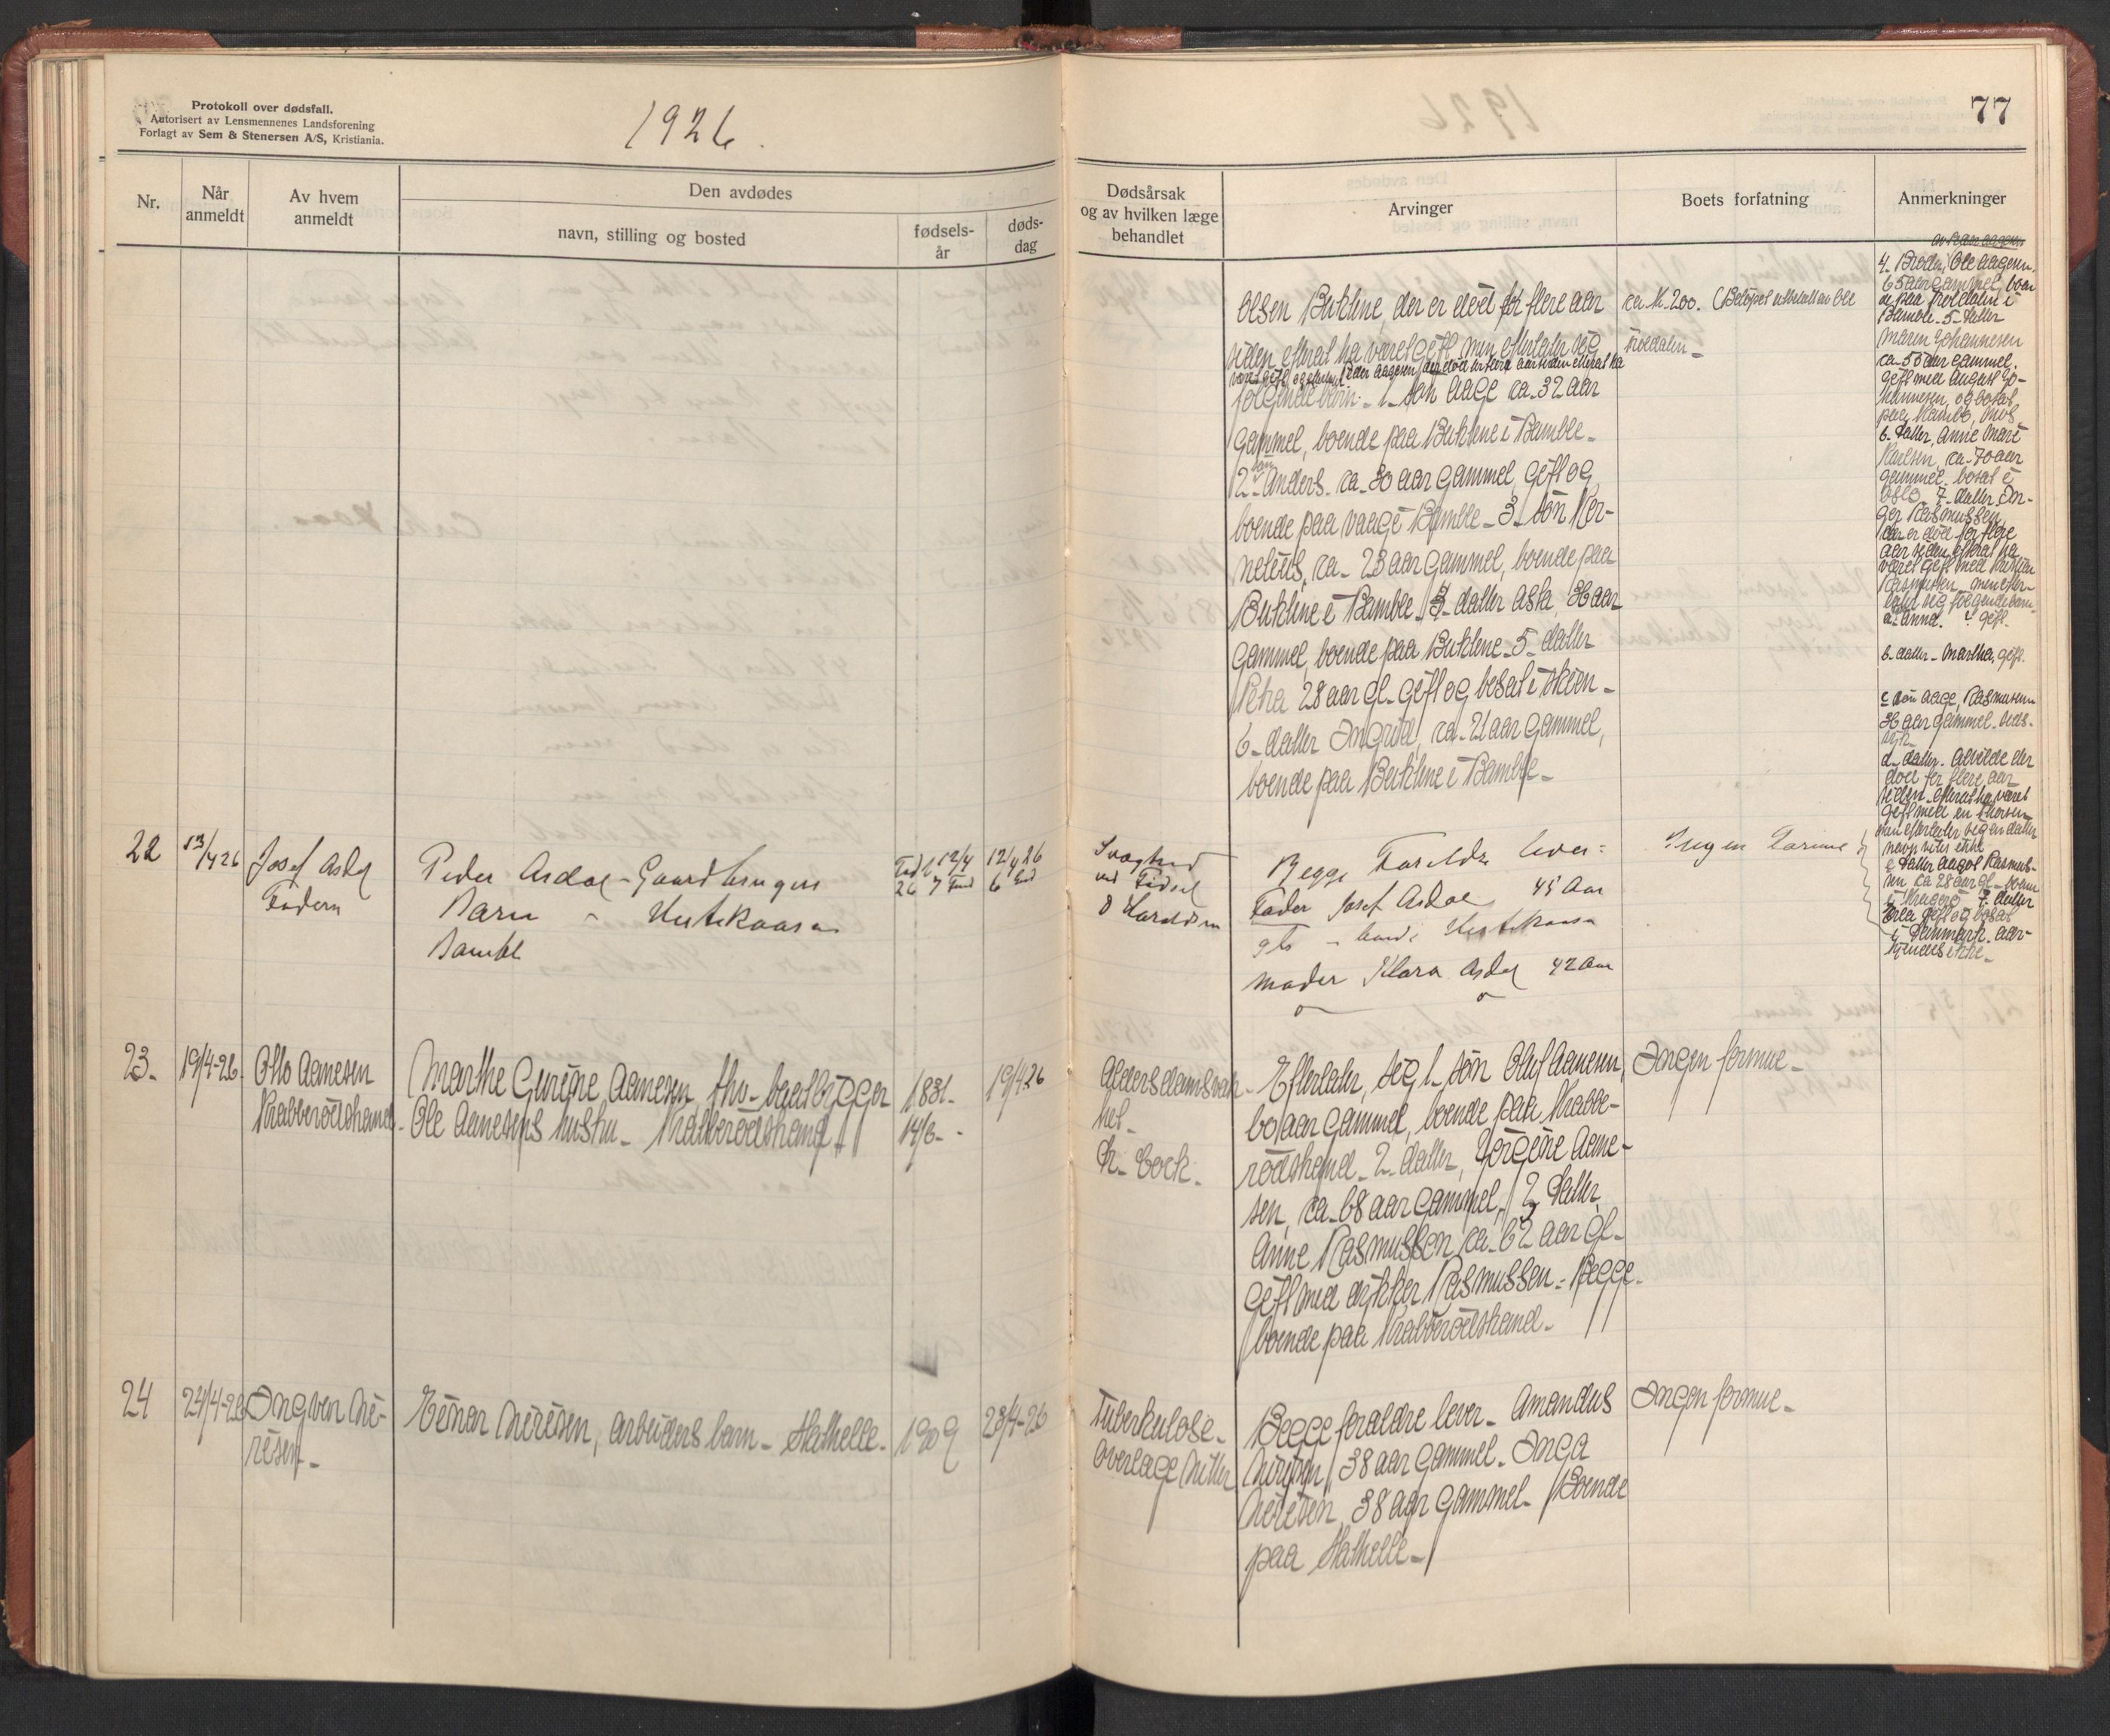 Protokoll over dødsfall.
Autorisert av Lensmennenes Landsforening
Forlagt av Sem & Stenersen A/S, Kristiania.
1926.
77
Nr.
Når
anmeldt
Av hvem
anmeldt
Den avdødes
navn, stilling og bosted
fødsels-
år
døds-
dag
Dødsårsak
og av hvilken læge
behandlet
Arvinger
Boets forfatning
Anmerkninger
Olsen, der er død for flere aar
siden efterat ha været gift, men efterlater sig
følgende børn:- 1- søn Aage ca. 32 aar
gammel, boende paa i Bamble-
2- søn Anders- ca- 30 aar gammel, gift og
boende paa Vaage i Bamble- 3- søn Kor-
nelius, ca- 23 aar gammel, boende paa
i Bamble- datter Asta, aar
gammel, boende paa 5- datter
28 aar gl- gift og bosat i Skien-
6- datter Ingrid, ca- 21 aar gammel,
boende paa i Bamble-
ca. Kr. 200.
4- Broder, Ole Aagesen,
65 aar gammel, boen
de paa i
Bamble- 5- datter
Maren Johannesen
ca- 55 aar gammel.
gift med August Jo-
hannesen, og bosat
paa Kambo, Mos-
6- datter, Anne Marie
Karlsen, ca- 70 aar
gammel- bosat i
Oslo- 7- datter, In-
ger Rasmussen,
der er død for flere
aar siden efterat ha
været gift med
Rasmussen- men efter-
latt sig følgende barn.
a- Anna. gift.
b- datter- Martha, gift.
c søn Aage, Rasmussen
aar gammel-
d- datter- Alvilde der
død for flere aar
siden- efterat ha været
gift med en
men efterlater sig en datter
navn vites ikke
e datter Aagot Rasmus-
sen ca 28 aar gl- boen
i Kragerø- datter
gift og bosat
i Danmark. aar-
kjendes ikke-
22
13/4 26
Josef Asdal
Faderen
Peder Asdal- Gaardbrugers
Barn - Hestekaasa
Bamble
Fød 12/4
26
12/4 26
Svaghed
ved Fødsel
Begge Foreldre lever:
Fader Josef Asdal 45 Aar
gb - Hestekaasa
Moder Klara Asdal 42 Aar
Ingen Formue
23-
19/4-26.
Otto Aanesen
Krabberødstrand-
Marthe Gurine Aanesen, fhv- baatbygger
Ole Aanesens hustru- Krabberødstrand.
1831-
14/6-
19/4 26
Alderdomsvak-
het-
Dr. Bock.
Efterlater, sig 1- søn Oluf Aanesen,
60 aar gammel, boende paa Krabbe-
rødstrand- 2- datter, Jørgine Aane-
sen, ca- 68 aar gammel, datter,
Anne Rasmussen ca- 62 aar gl-
gift med dykker Rasmussen- Begge-
boende paa Krabberødstrand-
Ingen formue-
24
24/4-26
Ingwer Ni-
risen-
Einar Nirisen, arbeiders barn- Stathelle-
1909
23/4-26
Tuberkulose-
Overlæge
Begge foreldre lever- Amandus
Nirisen, 38 aar gammel- Inga
Nirisen, 38 aar gammel- Boende
paa Stathelle-
Ingen formue-